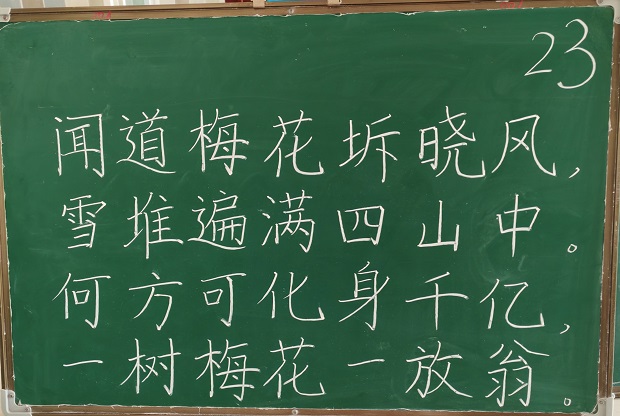 23
闻道梅花坼晓风，
雪堆遍满四山中。
何方可化身千亿，
一树梅花一放翁。